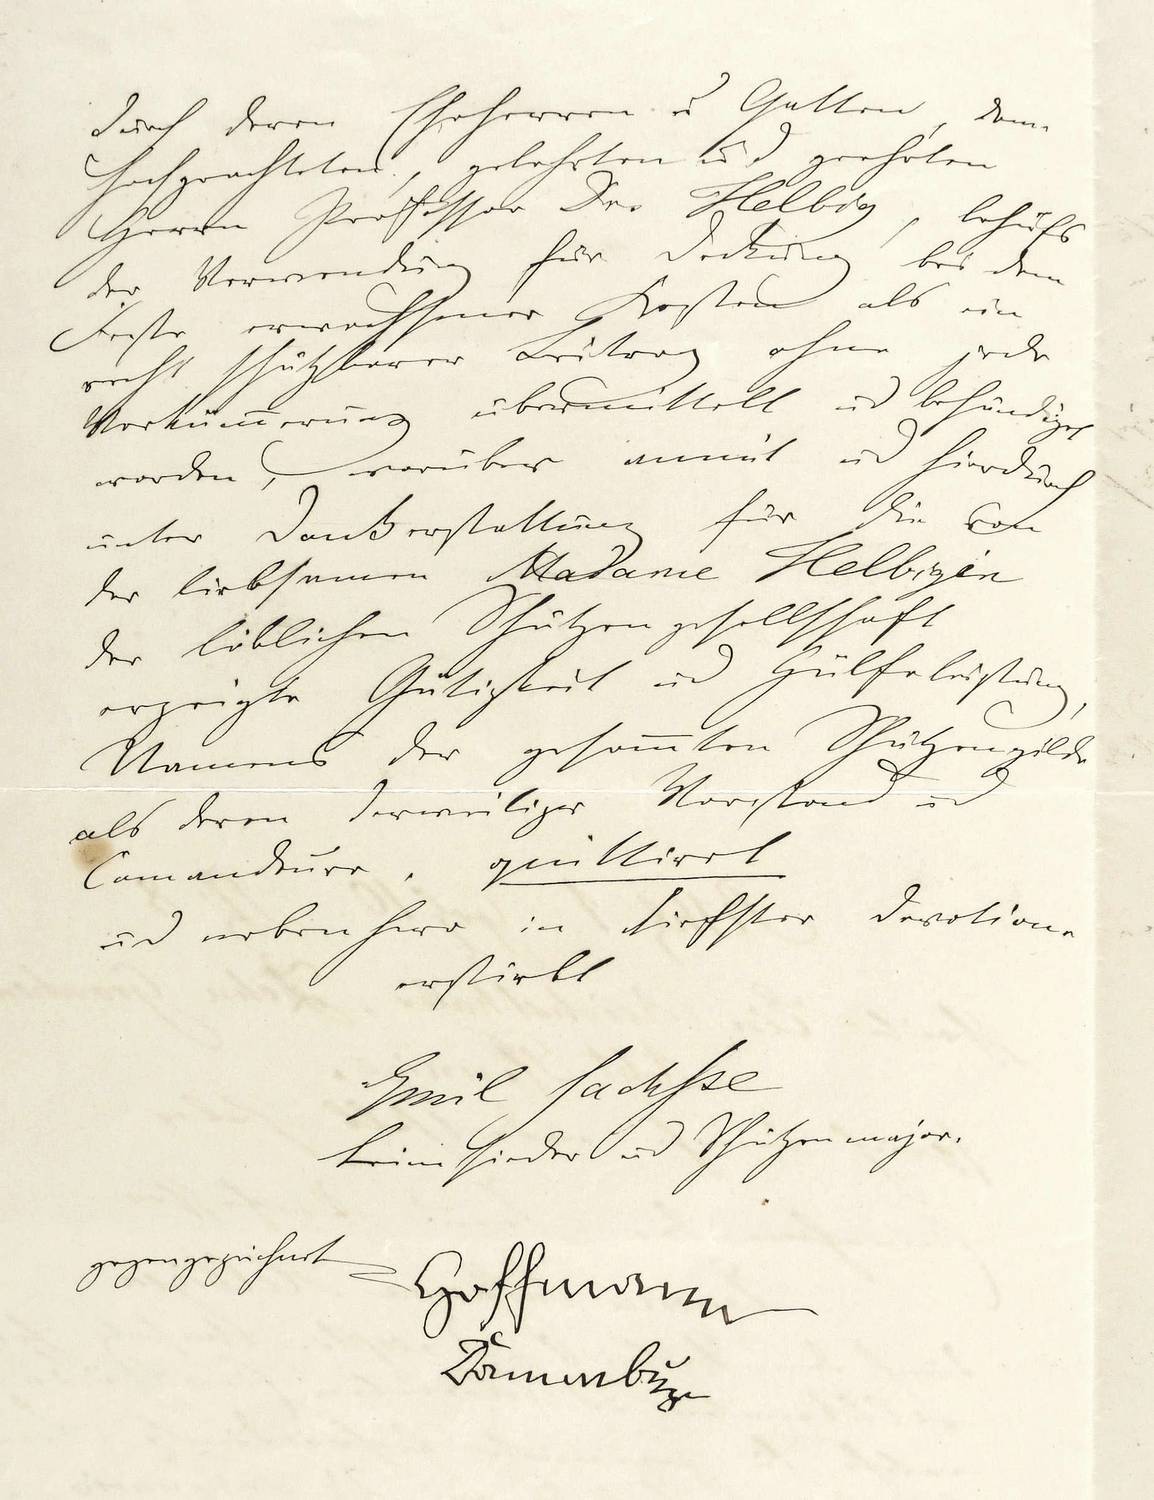 durch deren Eheherren u Gatten, dem
hochgeachteten, gelehrten und geehrten
Herrn Professor Dr. Helbig, behufs
der Verwendung für Deckung bei dem
Feste erwachsener Kosten als ein
recht schätzbarer Beitrag ohne jede
Verkümerung übermittelt ud behändiget
worden, worüber anmit ud hierdurch
unter Dankerstattung für die von
der liebsamen Madame Helbigin
der löblichen Schützengesellschaft
erzeigte Gütigkeit ud Hülfeleistung,
Namens der gesamten Schützengilde
als deren derweiliger Vorstand ud
Comandeure, quittiret
ud nebenhero in tiefster Devotion
erstirbt
Emil Sachsse
Leimsieder ud Schützenmajor.
gegengezeichnet Hoffmann